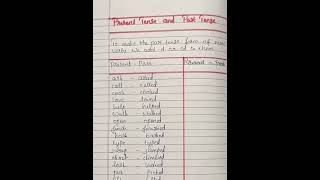 Present Tense and Past Tense
To make the past tense form of most
verbs we add d or ed to them.
Present - Past
Present - Past
ask - asked
call - called
cook - cooked
love - loved
help - helped
walk - walked
open - opened
bark - barked
type - typed
jump - jumped
look - looked
pick - picked